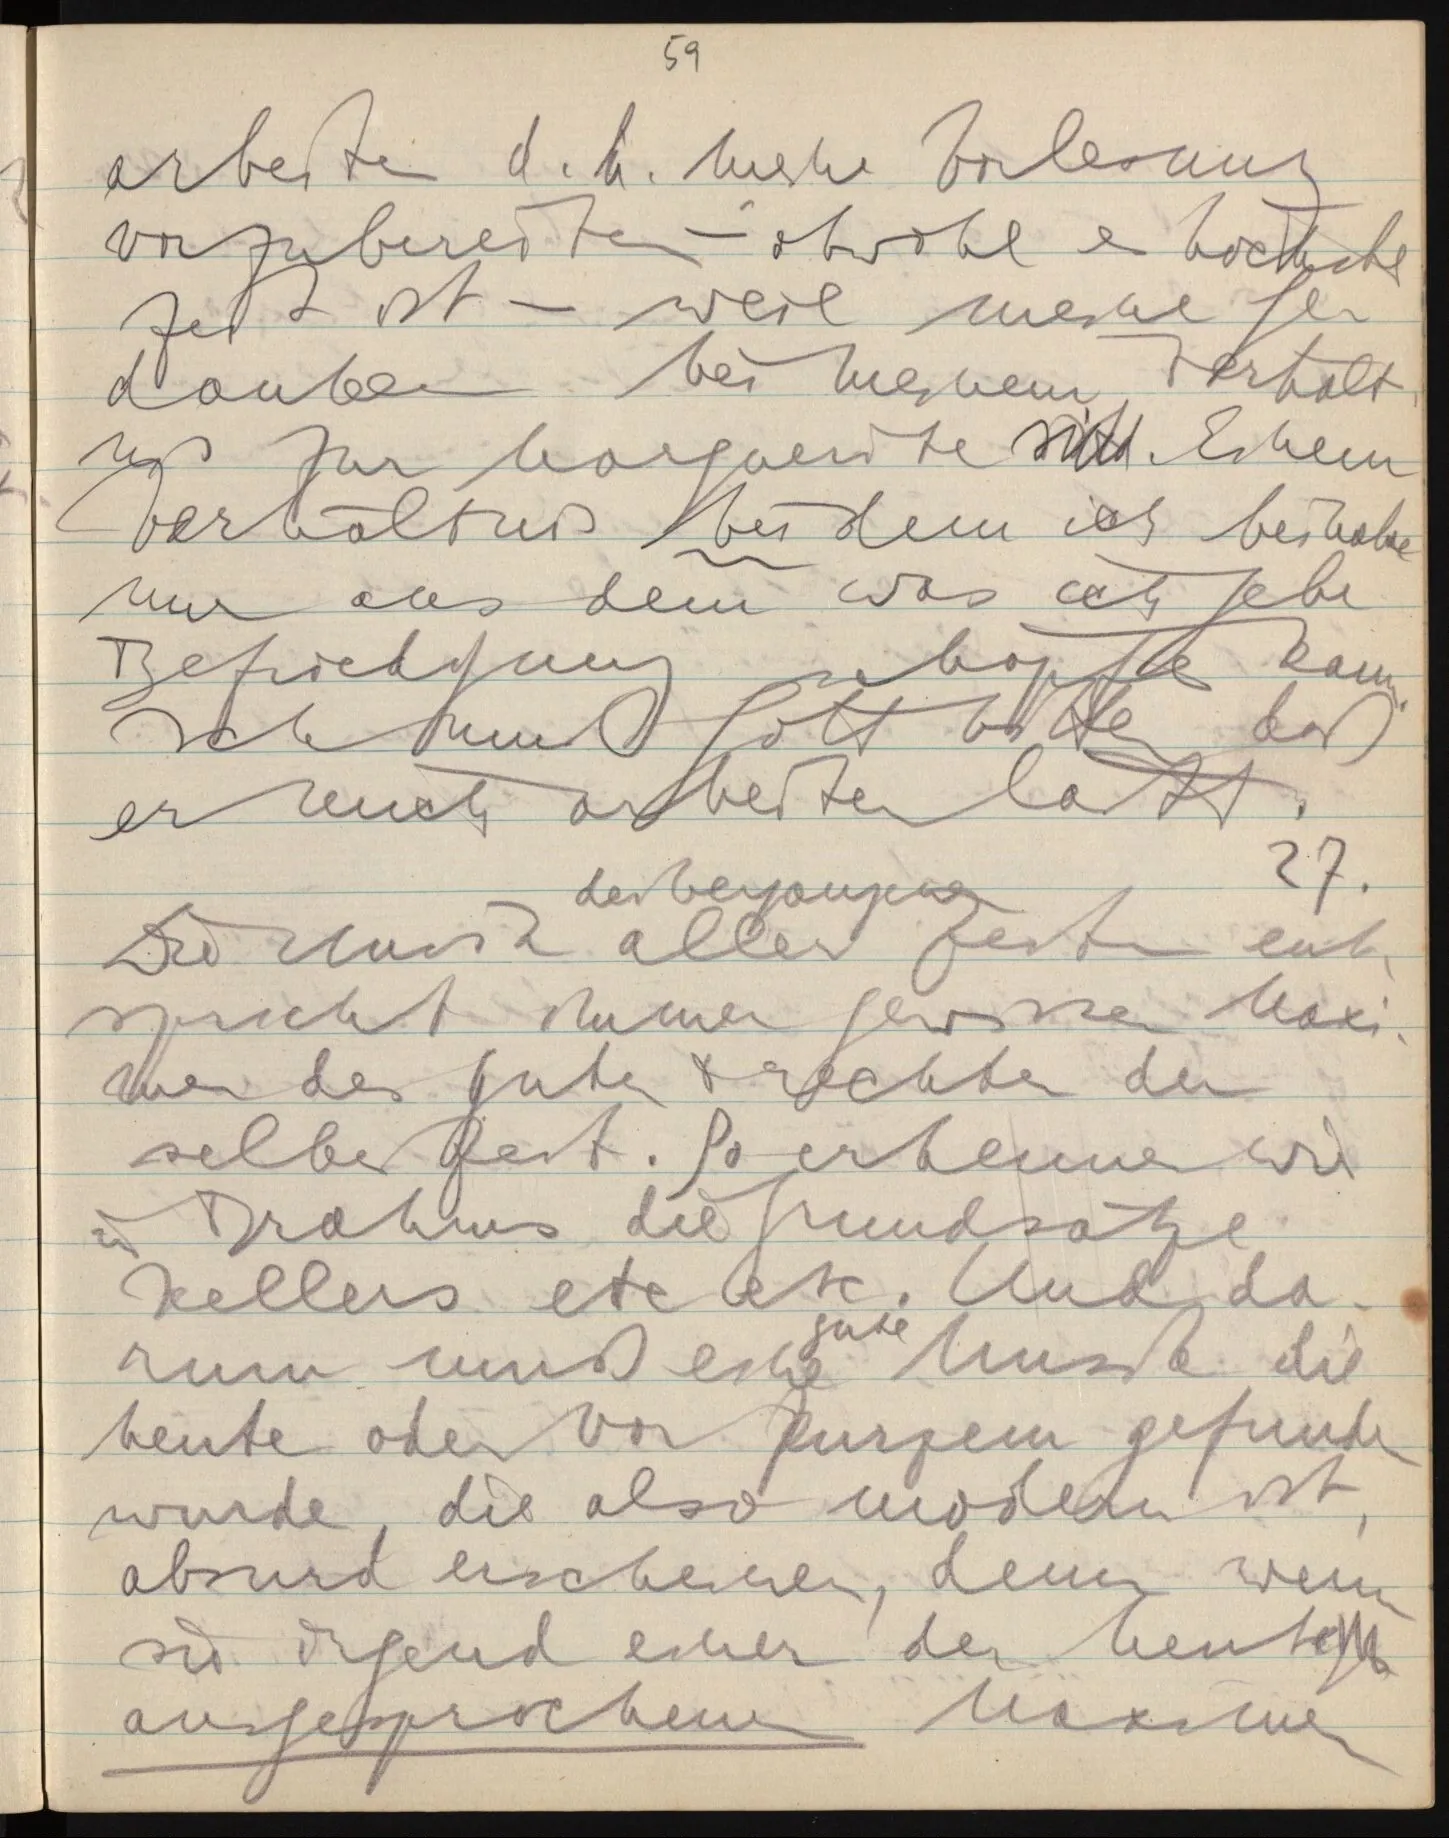 59
arbeiten d.h. meine Vorlesung
vorzubereiten – obwohl es höchste
Zeit ist – weil meine Ge-
danken bei meinem Verhält-
nis zur Marguerite sind. Einem
Verhältnis bei dem ich beinahe
nur aus dem was ich gebe
Befriedigung schöpfen kann.
Ich muß Gott bitten daß
er mich arbeiten läßt.
27.
der vergangenen
Die Musik aller Zeiten ent-
spricht immer gewissen Maxi-
men des guten & rechten der
selben Zeit. So erkennen wir
in Brahms die Grundsätze
Kellers etc etc. Und da-
rum muß eine gute Musik die
heute oder vor kurzem gefunden
wurde, die also modern ist,
absurd erscheinen, denn wenn
sie irgend einer der heute
ausgesprochenen Maximen